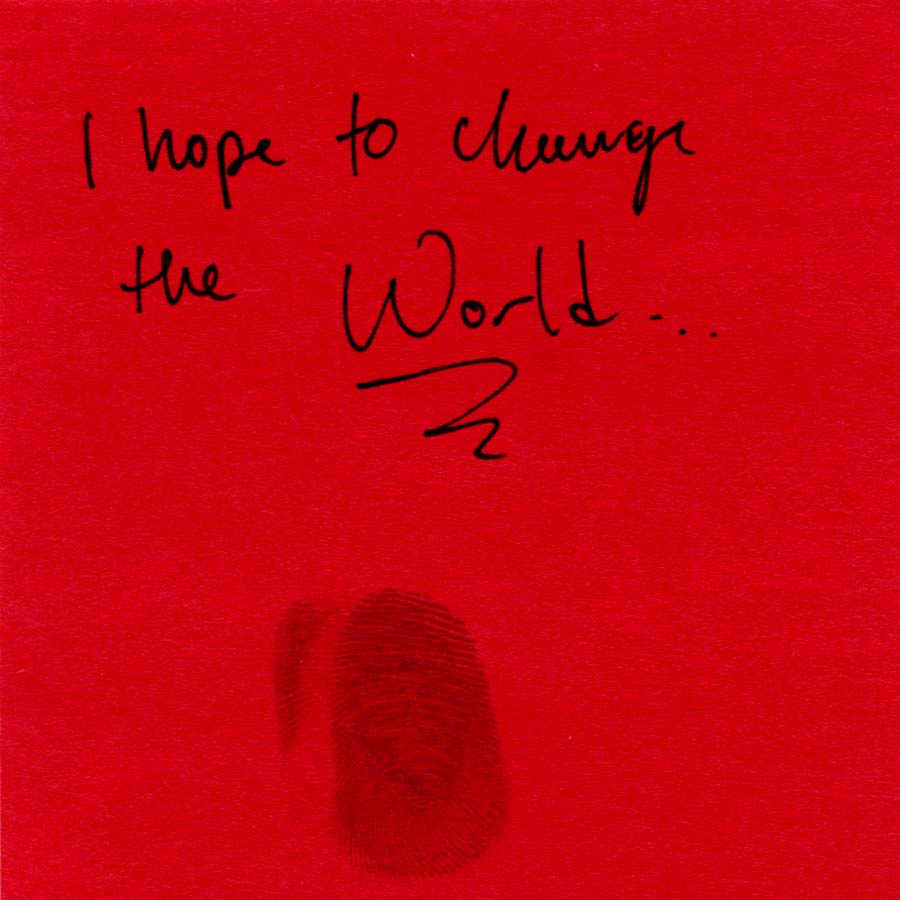 I hope to change
the World...